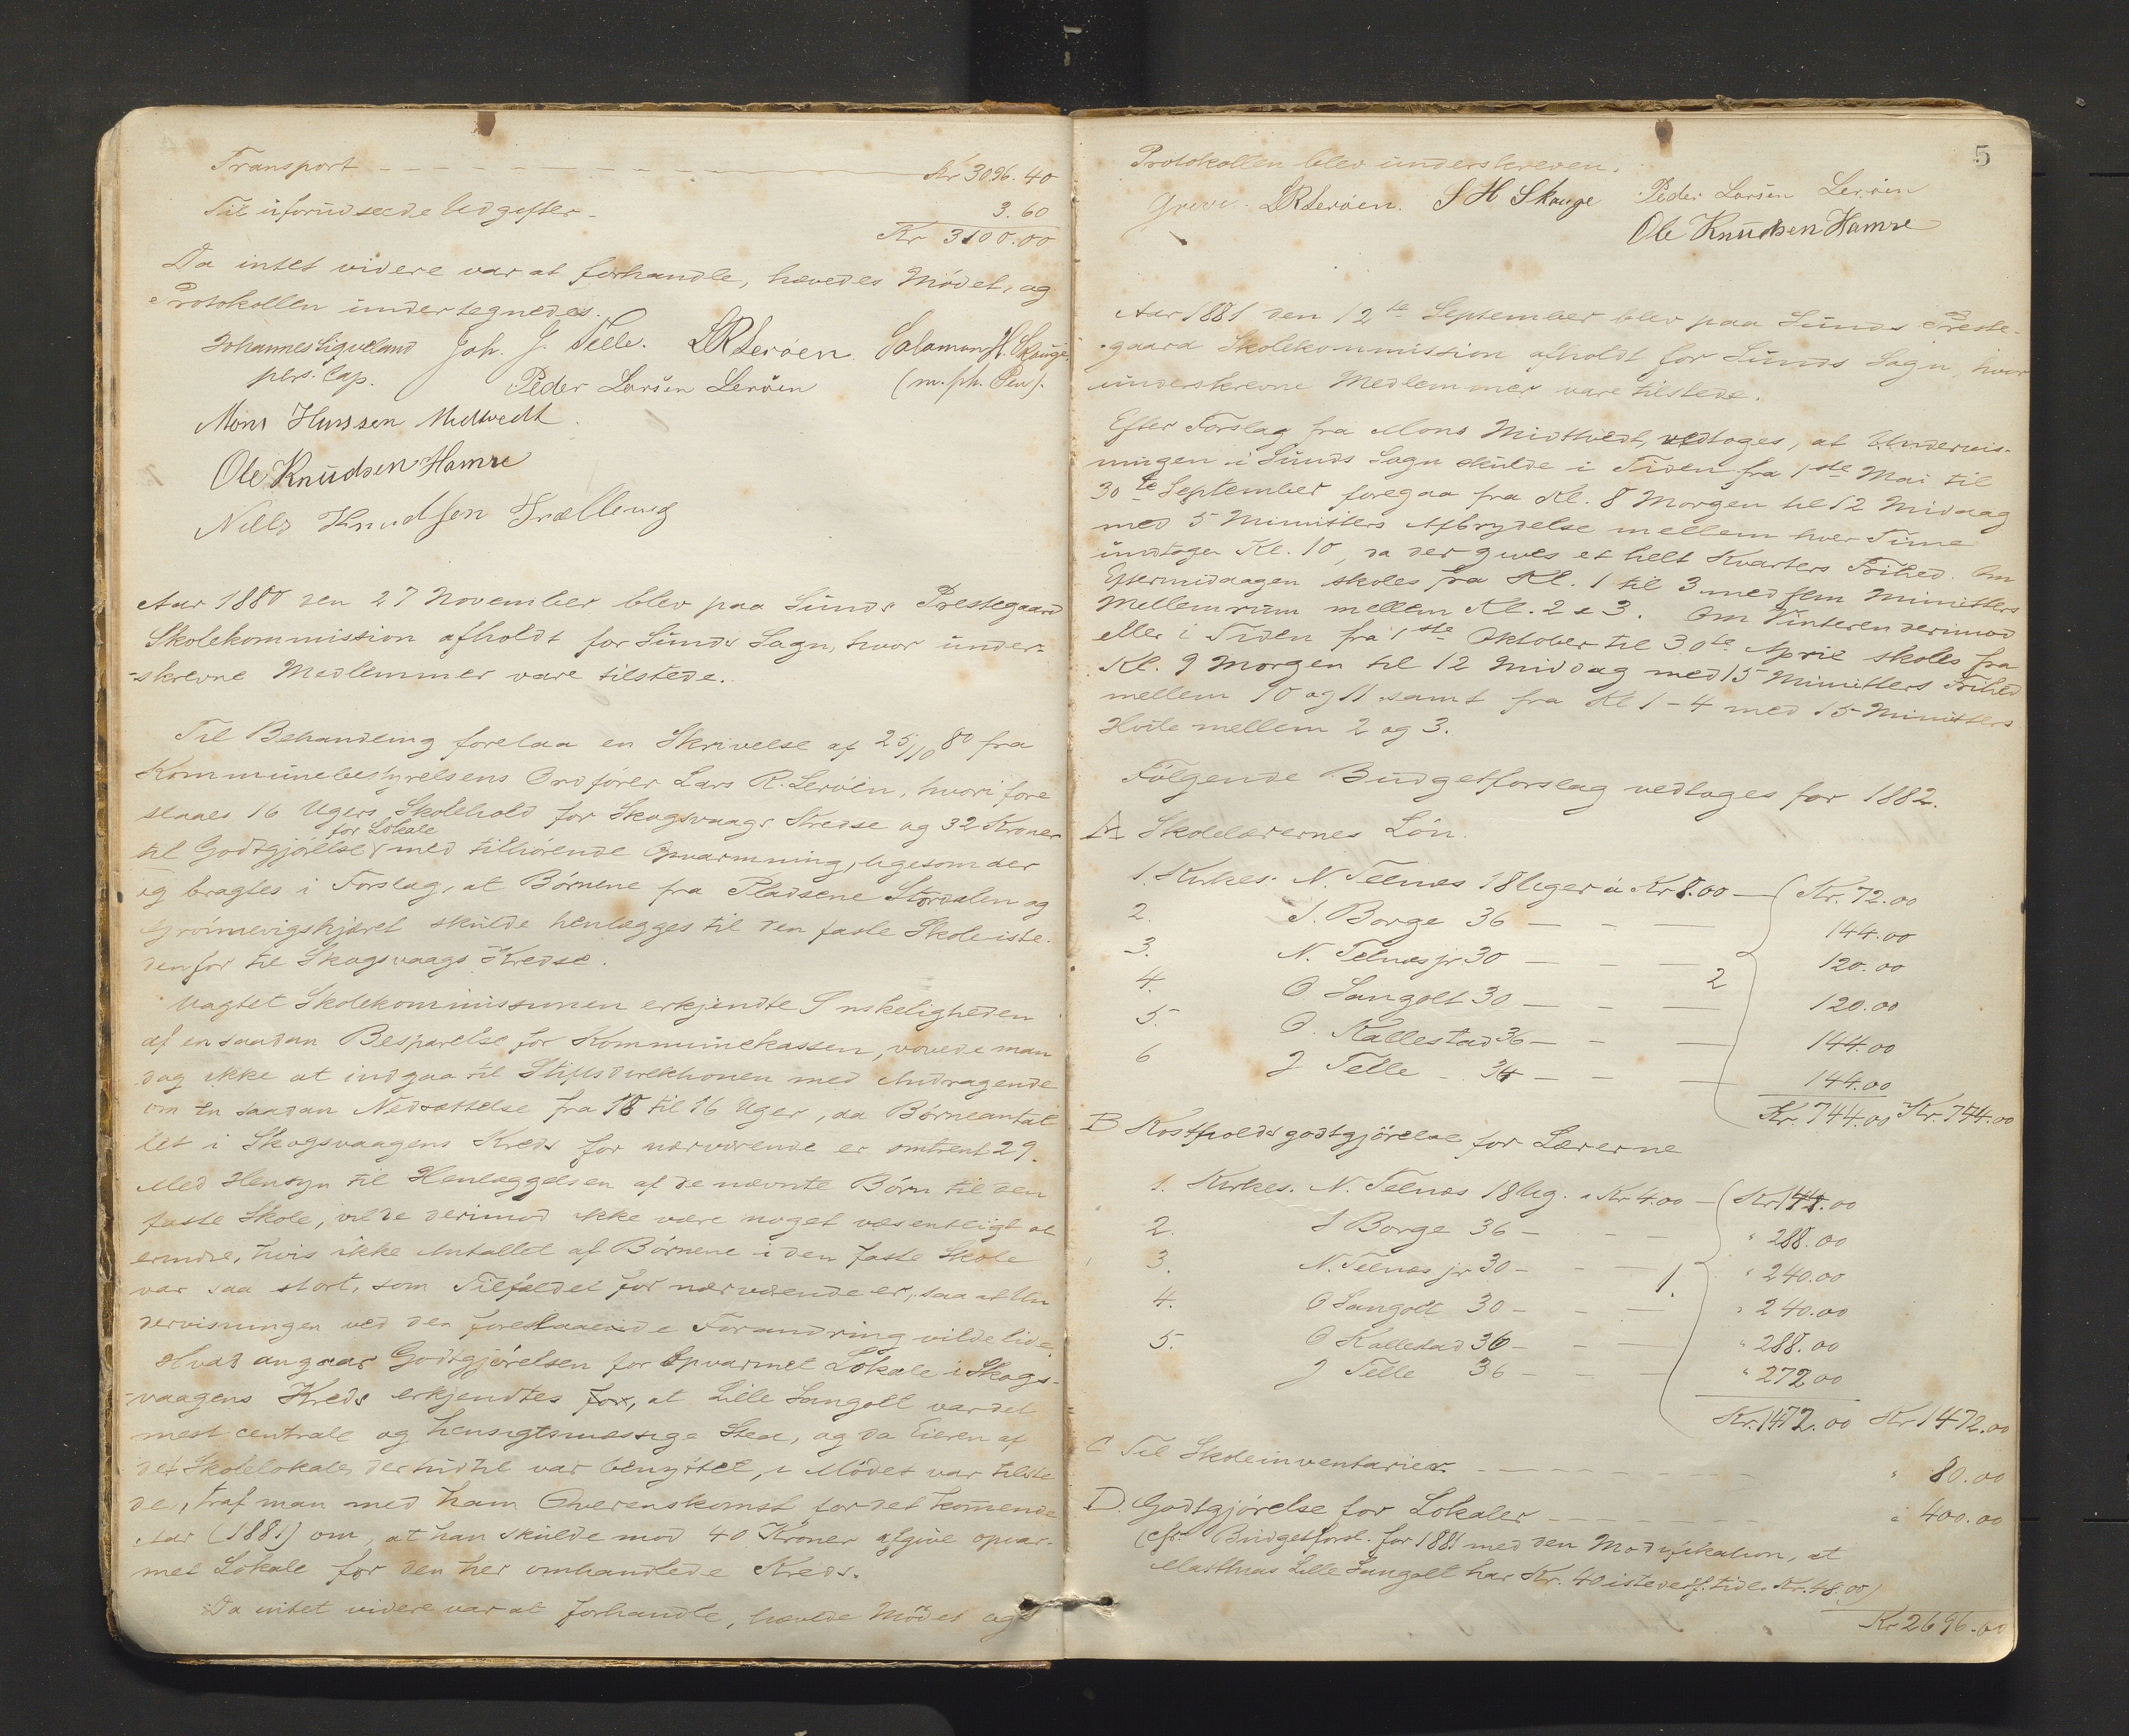 Transport - - - - - - - - - - Kr 3096.40
Til uforudseede Udgifter - 3.60
Kr 3100.00
Da intet videre var at forhandle, hævedes Mødet, og
Protokollen undertegnedes.
Johannes Ligveland Joh. J. Telle. LRLerøen. Salamon H. Skauge
pers. Cap. Peder Larsen Lerøen (m. ph. Pen).
Mons Hanssen Midtvedt.
Ole Knudsen Hamre
Nills Knudsen Trællevig
Aar 1880 den 27 November blev paa Sunds Prestegaard
Skolekommission afholdt for Sunds Sogn, hvor under-
-skrevne Medlemmer vare tilstede.
Til Behandling forelaa en Skrivelse af 25/10 80 fra
Kommunebestyrelsens Ordfører Lars R. Lerøen, hvori fore
slaaes 16 Ugers Skolehold for Skogsvaags Kredse og 32 Kroner
for Lokale
til Godtgjørelse med tilhørende Opvarmning, ligesom der
og bragtes i Forslag, at Børnene fra Pladsene Stordalen og
skulde henlægges til den faste Skole iste-
denfor til Skogsvaags Kredse.
Uagtet Skolekommissionen erkjendte Ønskeligheden
af en saadan Besparelse for Kommunekassen, vovede man
dog ikke at indgaa til Stiftsdirektionen med Andragende
om en saadan Nedsættelse fra 18 til 16 Uger, da Børneantal
let i Skogsvaagens Kreds for nærværende er omtrent 29.
Med Hensyn til Henlæggelsen af de nævnte Børn til den
faste Skole, vilde derimod ikke være noget væsentligt at
erindre, hvis ikke Antallet af Børnene i den faste Skole
var saa stort, som Tilfældet for nærværende er, saa at Un
dervisningen ved den foreslaaende Forandring vilde lide.
Hvad angaar Godtgjørelsen for opvarmet Lokale i Skogs-
-vaagens Kreds erkjendtes for, at Lille Sangolt var det
mest centrale og hensigtsmæssige Sted, og da Eieren af
det Skolelokale, der hidtil var benyttet, i Mødet var tilste
de, traf man med ham Overenskomst for det kommende
Aar (1881) om, at han skulde mod 40 Kroner afgive opvar-
met Lokale for den her omhandlede Kreds.
Da intet videre var at forhandle, hævede Mødet og
5
Protokollen blev underskreven.
Greve. LRLerøen. S H Skauge Peder Larsen Lerøen
Ole Knudsen Hamre
Aar 1881 den 12te September blev paa Sunds Preste-
-gaard Skolekommission afholdt for Sunds Sogn, hvor
underskrevne Medlemmer vare tilstede.
Efter Forslag fra Mons Midttvedt, vedtoges, at Undervis-
ningen i Sunds Sogn skulde i Tiden fra 1ste Mai til
30te September foregaa fra Kl. 8 Morgen til 12 Middag
med 5 Minutters Afbrydelse mellem hver Time
undtagen Kl. 10, da der gives et helt Kvarters Frihed. Om
Eftermiddagen skoles fra Kl. 1 til 3 med fem Minutters
Mellemrum mellem Kl. 2 & 3. Om Vinteren derimod
eller i Tiden fra 1ste Oktober til 30te April skoles fra
Kl. 9 Morgen til 12 Middag med 15 Minutters Frihed
mellem 10 og 11 samt fra Kl 1-4 med 15 Minutters
Hvile mellem 2 og 3.
Følgende Budgetforslag vedtoges for 1882.
A Skolelærernes Løn.
1. Kirkes. N. Telnæs 18 Uger à Kr 8.00 — Kr. 72.00
2. S. Borge 36 — - — 144.00
3. N. Telnæs jr 30 — - — 120.00
2
4. O Sangolt 30 — - — 120.00
5. O. Kallestad 36 — - — 144.00
6 J Telle - 36 — - — 144.00
Kr. 744.00 Kr. 744.00
B Kostholdsgodtgjørelse for Lærerne
1. Kirkes. N. Telnæs 18 Ug. a Kr 4.00 — Kr 144.00
2. S Borge 36 - - — " 288.00
3. N. Telnæs jr 30 - - — " 240.00
1.
4. O Sangolt 30 - - — " 240.00
5. O Kallestad 36 - - — " 288.00
J Telle 36 - - — " 272.00
Kr. 1472.00 Kr 1472.00
C Til Skoleinventarier - - - - - - " 80.00
D. Godtgjørelse for Lokaler - - - - - - " 400.00
(cfr. Budgetforsl. for 1881 med den Modifikation, at
Matthias Lille Sangolt har Kr. 40 istedetf. tidl. Kr. 48.00)
Kr 2696.00